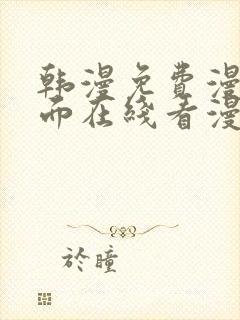 韩漫免费漫
而在线看漫
於瞳